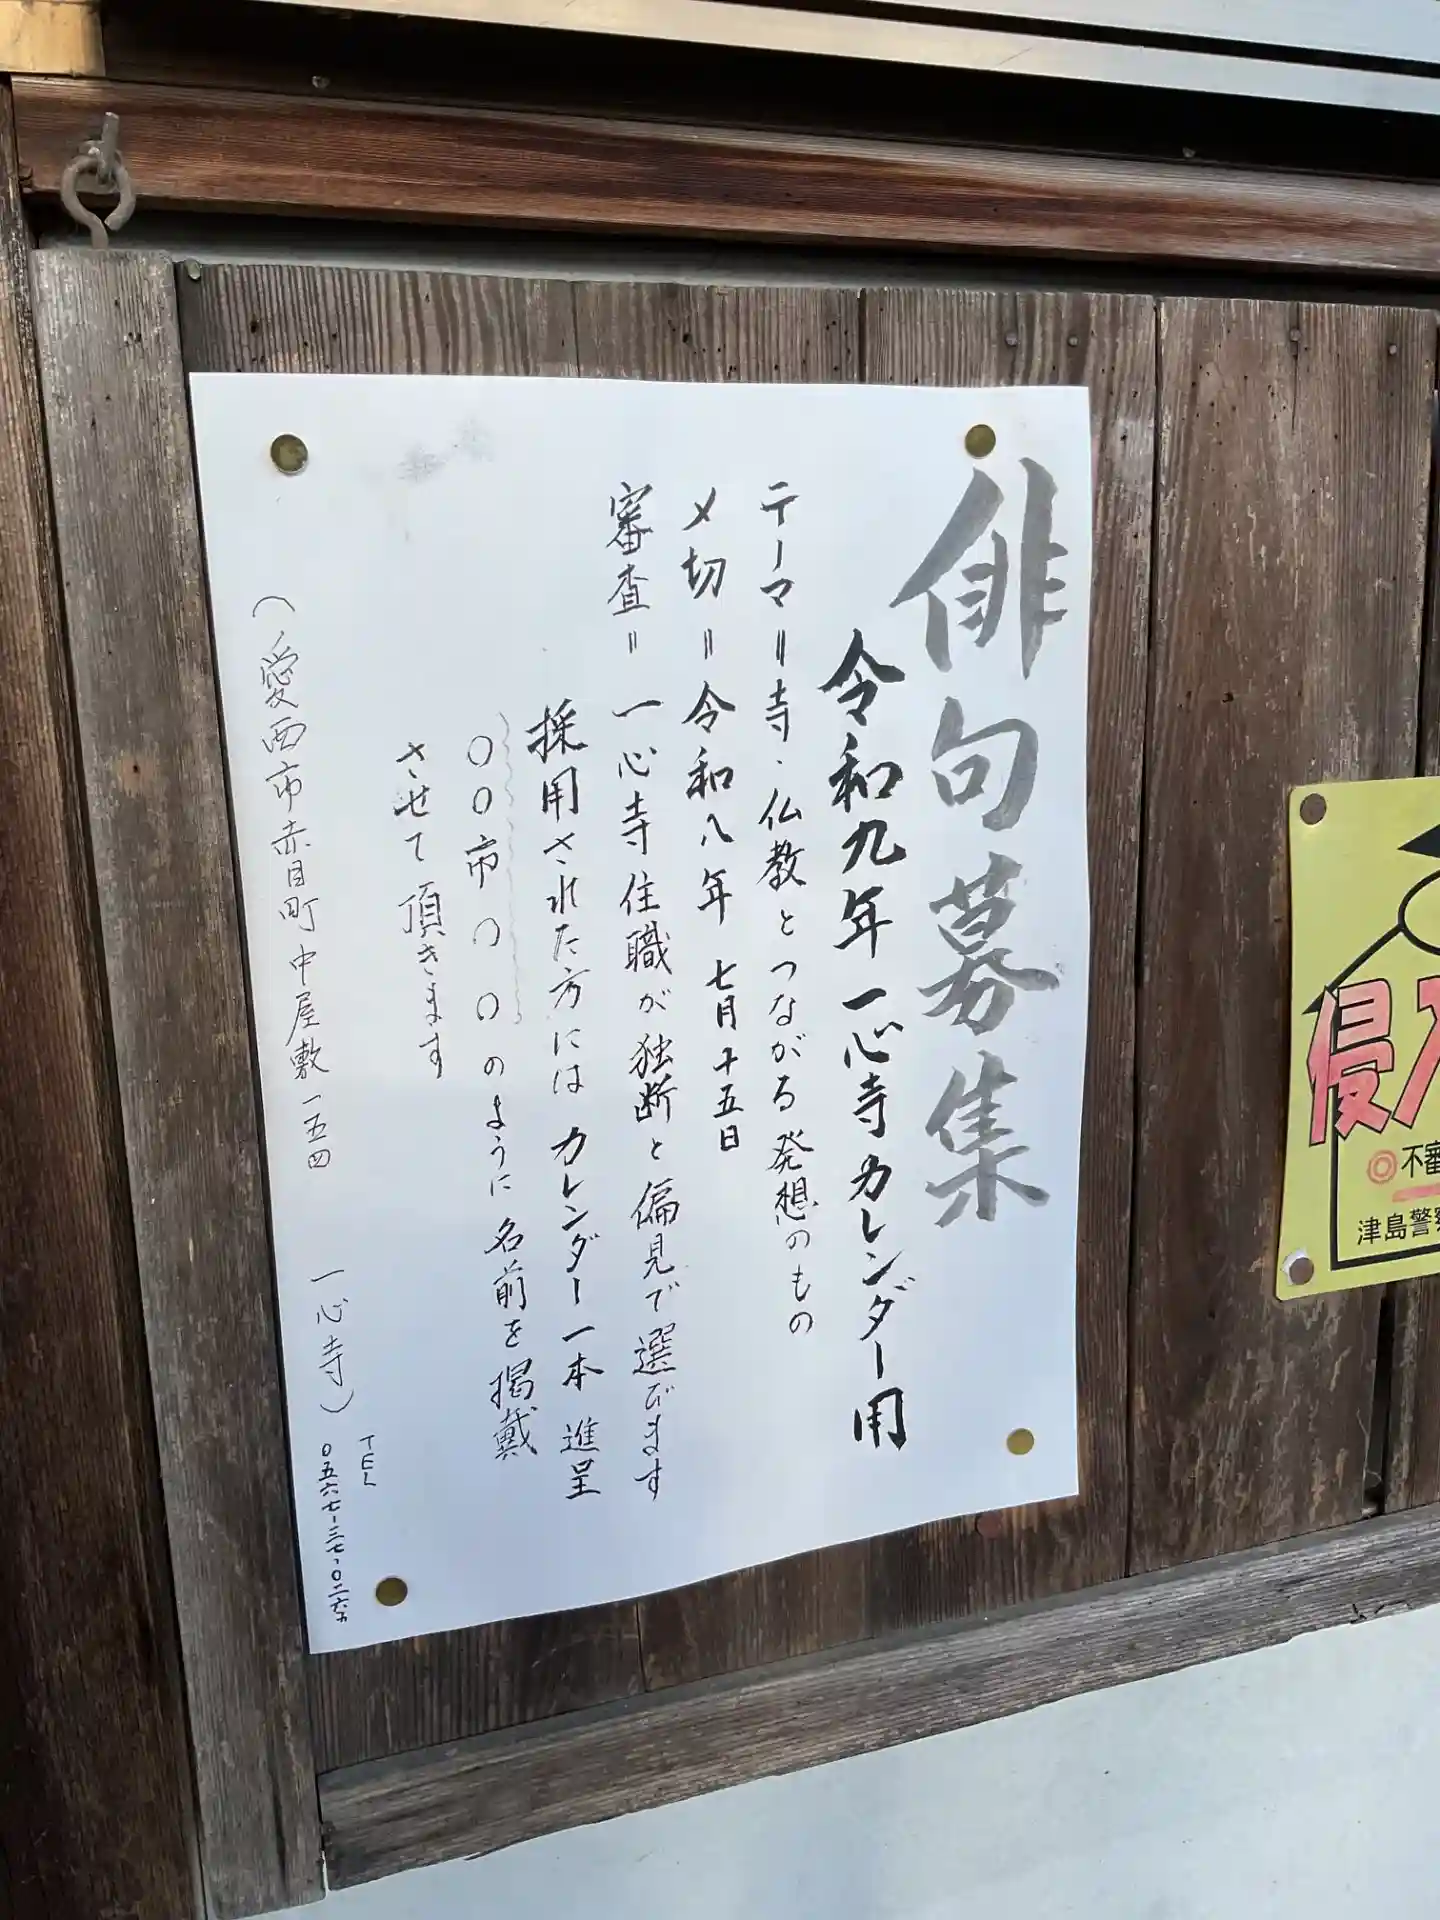 俳句募集
令和九年一心寺カレンダー用
テーマ=寺・仏教とつながる発想のもの
〆切=令和八年 七月十五日
審査=一心寺住職が独断と偏見で選びます
採用された方には カレンダー一本 進呈
〇〇市〇〇のように名前を掲載
させて頂きます
(愛西市赤目町中屋敷一五四 一心寺)
TEL
〇五六七-三七-〇二六
侵入
◎不審
津島警察